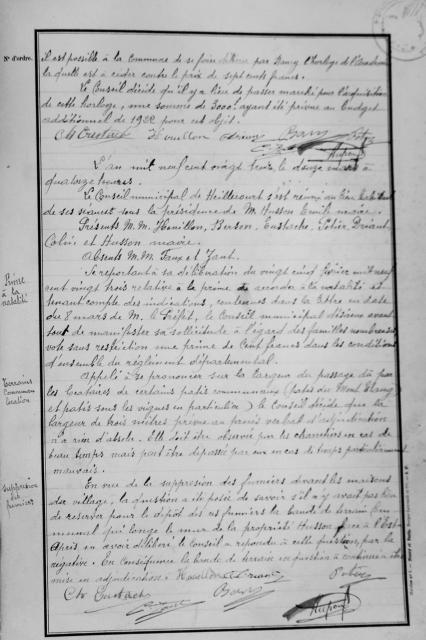 N° d'ordre.
il est possible à la commune de se faire par l'horloge de
la quelle est à céder contre le prix de sept cents francs.
Le Conseil décide qu'il y a lieu de passer marché pour l'acquisition
de cette horloge, une somme de 3000f ayant été prévue au budget
additionnel de 1922 pour cet objet.
Ch Eustache Houillon
Dupont
L'an mil neuf cent vingt trois, le douze mars à
quatorze heures.
Le Conseil municipal de Heillecourt s'est réuni au lieu
de ses séances sous la présidence de M. Husson Emile maire.
Présents M.M. Houillon, Berson, Eustache, Potier,
Colin et Husson maire.
Absents M.M. et
Se reportant à sa délibération du vingt cinq février mil neuf
cent vingt trois relative à la prime à accorder à la natalité et
tenant compte des indications, contenues dans la lettre en date
du 8 mars de M. le Préfet, le Conseil municipal désireux avant
tout de manifester sa sollicitude à l'égard des familles nombreuses
vote sans restriction une prime de Cent francs dans les conditions
d'ensemble du règlement départemental.
Prime
à la
natalité
Terrains
Communaux
location
Appelé à se prononcer sur la largeur du passage dû par
les locataires de certains patis communaux (patis du
et patis sous les vignes en particulier) le Conseil décide que la
largeur de trois mètres prévue au procès verbal d'adjudication
n'a rien d'absolu. Elle doit être observée par les charretiers en cas de
beau temps mais peut être dépassée par eux en cas de temps particulièrement
mauvais.
Suppression
des
fumiers
En vue de la suppression des fumiers devant les maisons
du village, la question a été posée de savoir s'il n'y avait pas lieu
de réserver pour le dépôt de ces fumiers la bande de terrain com
munal qui longe le mur de la propriété Husson à l'Est
Après en avoir délibéré le Conseil a répondu à cette question par la
négative. En conséquence la bande de terrain en question à
mise en adjudication. Houillon
Ch Eustache
Dupont